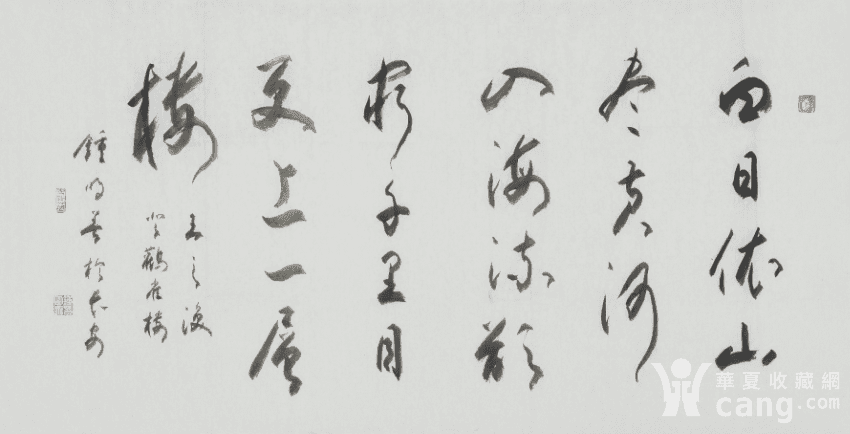 白日依山
尽黄河
入海流欲
窮千里目
更上一層
楼
王之涣
登鸛雀楼
鍾明善於长安
華夏收藏網
cang.com